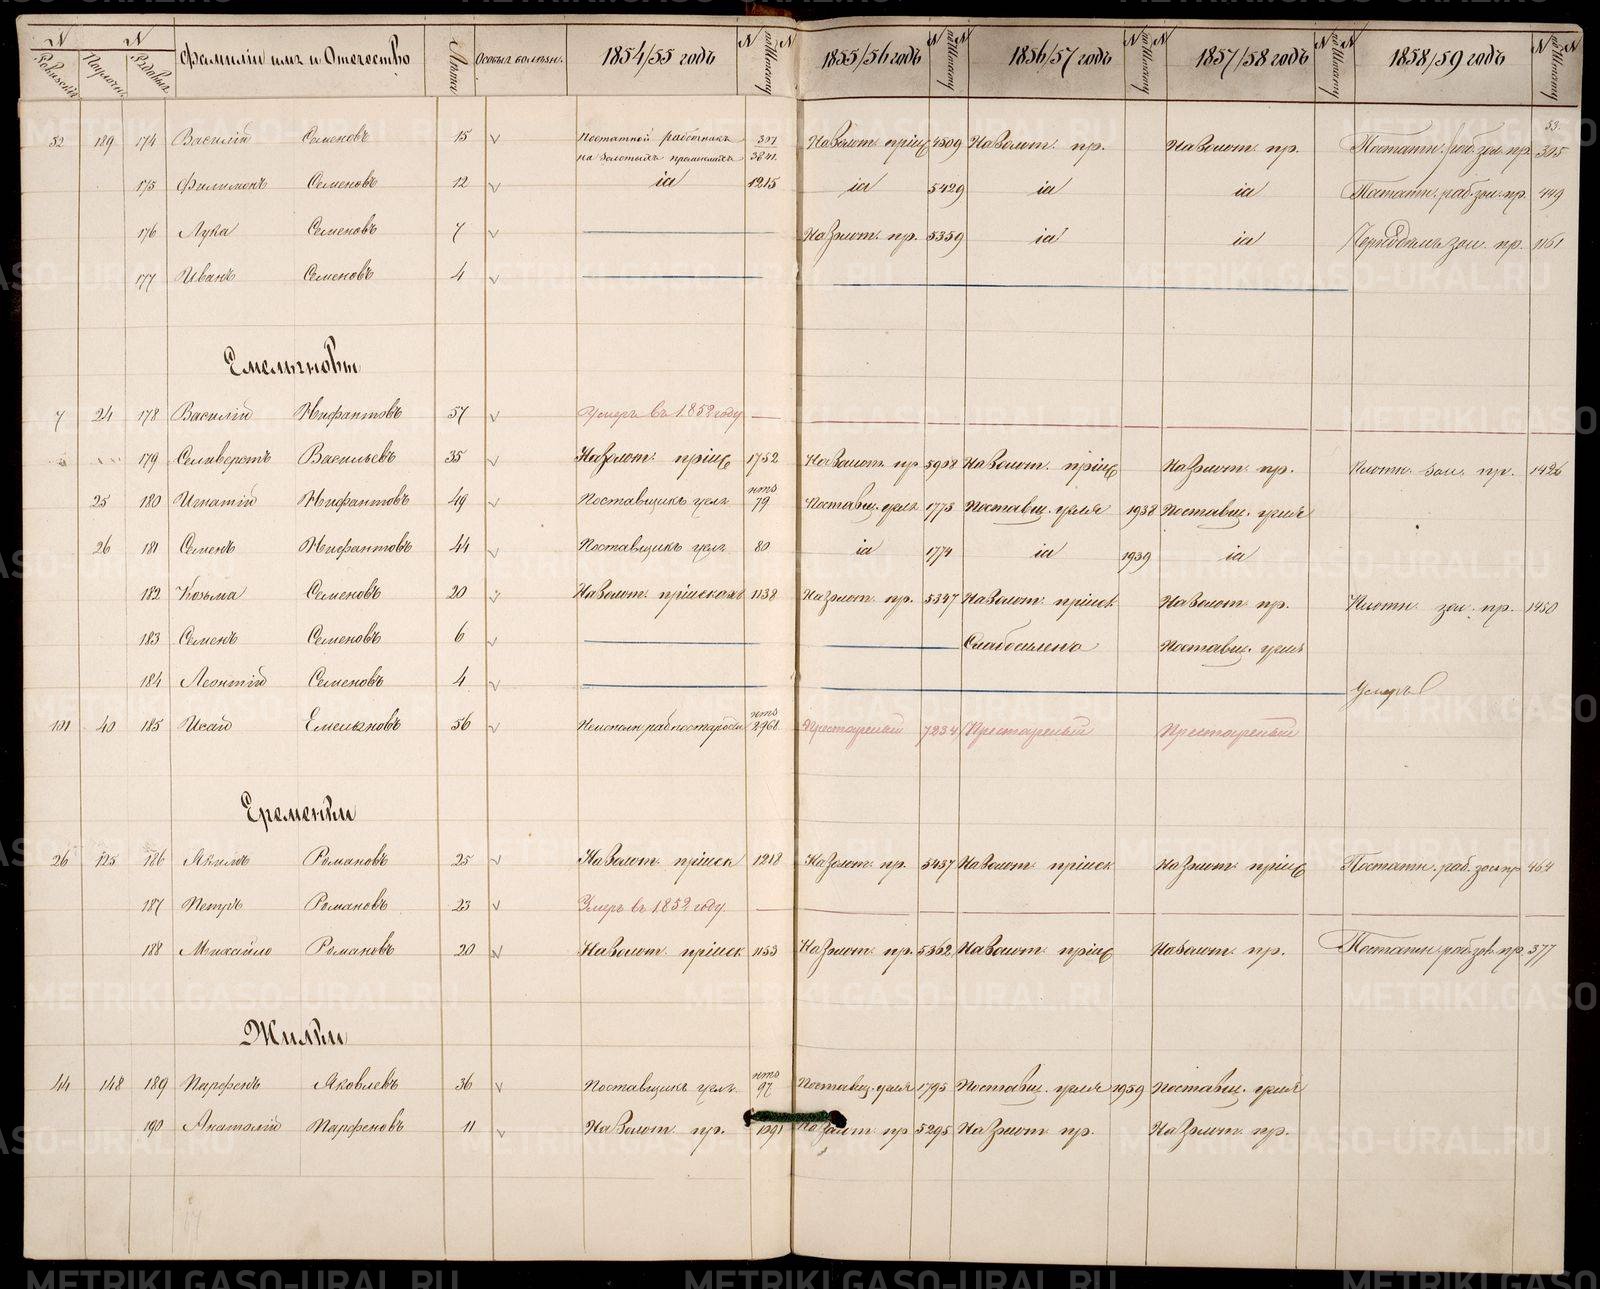 № № Фамилiи имя и Отечество Лѣта Особыя болѣзни. 1854/55 годъ № по Штату 1855/56 годъ № по Штату 1856/57 годъ № по Штату 1857/58 годъ № по Штату 1858/59 годъ № по Штату
53.
52 189 174 Василiй Семеновъ 15 Постатной работникъ 307 На Золот. прiиск 4509 На Золот. пр. На Золот. пр. Постатн. раб. зол. пр. 315
на Золотыхъ промыслахъ 3841
175 Филимонъ Семеновъ 12 id 1215 id 5429 id id Постатн. раб. зол. пр. 449
176 Лука Семеновъ 7 На Золот. пр. 5359 id id зол. пр. 1161
177 Иванъ Семеновъ 4
Емельяновы
7 24 178 Василiй Нифантовъ 57 Умеръ въ 1852 году
179 Селиверстъ Васильевъ 35 На Золот. прiиск 1752 На Золот. пр. 5908 На Золот. прiиск На Золот. пр. Плотн. зол. пр. 1426
25 180 Игнатiй Нифантовъ 49 Поставщикъ угля 79 Поставщ. угля 1773 Поставщ. угля 1938 Поставщ. угля
26 181 Семенъ Нифантовъ 44 Поставщикъ угля 80 id 1774 id 1939 id
182 Козьма Семеновъ 20 На Золот. прiискахъ 1138 На Золот. пр. 5347 На Золот. прiиск На Золот. пр. Плотн. зол. пр. 1450
183 Семенъ Семеновъ 6 Слабосиленъ Поставщ. угля
184 Леонтiй Семеновъ 4 Умеръ
101 40 185 Исай Емельяновъ 56 2968 Престарелый 7234 Престарелый Престарелый
Еременки
26 125 186 Романовъ 25 На Золот. прiиск 1218 На Золот. пр. 5437 На Золот. прiиск На Золот. прiиск Постатн. раб. зол. пр. 464
187 Петръ Романовъ 23 Умеръ въ 1852 году.
188 Михайло Романовъ 20 На Золот. прiиск 1153 На Золот. пр. 5362 На Золот. прiиск На Золот. пр. Постатн. раб. зол. пр. 377
Жилки
44 148 189 Парфенъ Яковлевъ 36 Поставщикъ угля 97 Поставщ. угля 1795 Поставщ. угля 1959 Поставщ. угля
190 Анатолiй Парфеновъ 11 На Золот. пр. 1291 На Золот. пр. 5295 На Золот. пр. На Золот. пр.
METRIKI.GASO-URAL.RU